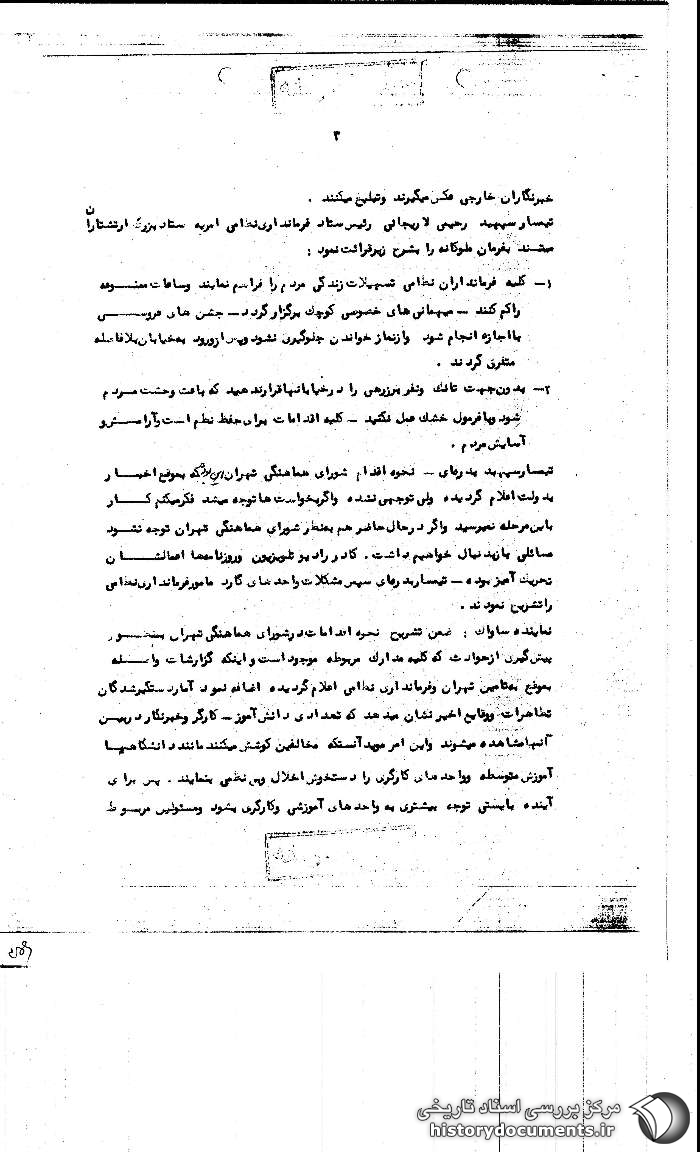 ۳
خبرنگاران خارجی عکس میگیرند وتبلیغ میکنند .
تیمسار سپهبد رحیمی لاریجانی رئیس ستاد فرمانداری نظامی امریه ستاد بزرگ ارتشتاران
میشند بفرمان ملوکانه را بشرح زیر قرائت نمود :
۱- کلیه فرمانداران نظامی تسهیلات زندگی مردم را فراهم نمایند وساعات ممنوعه
راکم کنند - میهمانی های خصوصی کوچک برگزار گردد - جشن های عروسی
با اجازه انجام شود وازنماز خواندن جلوگیری نشود وپس ازورود به خیابان بلافاصله
متفرق گردند .
۲- بدون جهت تانک ونفربرزرهی را درخیابانها قرار ندهید که باعث وحشت مردم
شود وبا فرمول خشک عمل نکنید - کلیه اقدامات برای حفظ نظم است وآرامش و
آسایش مردم .
تیمسار سپهبد بدره‌ای - نحوه اقدام شورای هماهنگی تهران که بموقع اخبار
بدولت اعلام گردیده ولی توجهی نشده واگر بخواست ها توجه میشد فکر میکنم کار
باین مرحله نمیرسید واگر درحال حاضر هم به نظر شورای هماهنگی تهران توجه نشود
مسائلی بازبدنبال خواهیم داشت . کادر رادیو تلویزیون وروزنامه‌ها اعمالشان
تحریک آمیز بوده - تیمسار بدره‌ای سپس مشکلات واحدهای گارد مامور فرمانداری نظامی
را تشریح نمودند .
نماینده ساواک : ضمن تشریح نحوه اقدامات درشورای هماهنگی تهران بمنظور
پیش گیری ازحوادث که کلیه مدارک مربوطه موجود است و اینکه گزارشات واصله
بموقع به تامین تهران وفرمانداری نظامی اعلام گردیده اضافه نمود آمار دستگیرشدگان
تظاهرات ووقایع اخیر نشان میدهد که تعدادی دانش آموز - کارگر وخبرنگار دربین
آنها مشاهده میشوند واین امر موید آنستکه مخالفین کوشش میکنند مانند دانشگاهها
آموزش متوسطه وواحدهای کارگری را دستخوش اخلال وبی نظمی بنمایند . پس برای
آینده بایستی توجه بیشتری به واحدهای آموزشی وکارگری بشود ومسئولین مربوط
مرکز بررسی اسناد تاریخی
historydocuments.ir